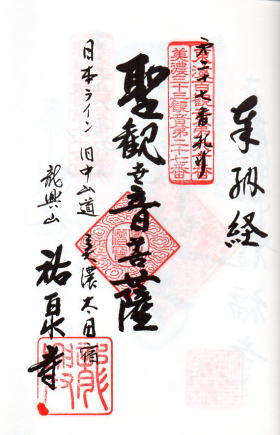 奉納経
第二十七番札所
美濃三十三観音第二十七番
聖観世音菩薩
日本ライン 旧中山道 美濃太田宿
龍興山
祐泉寺